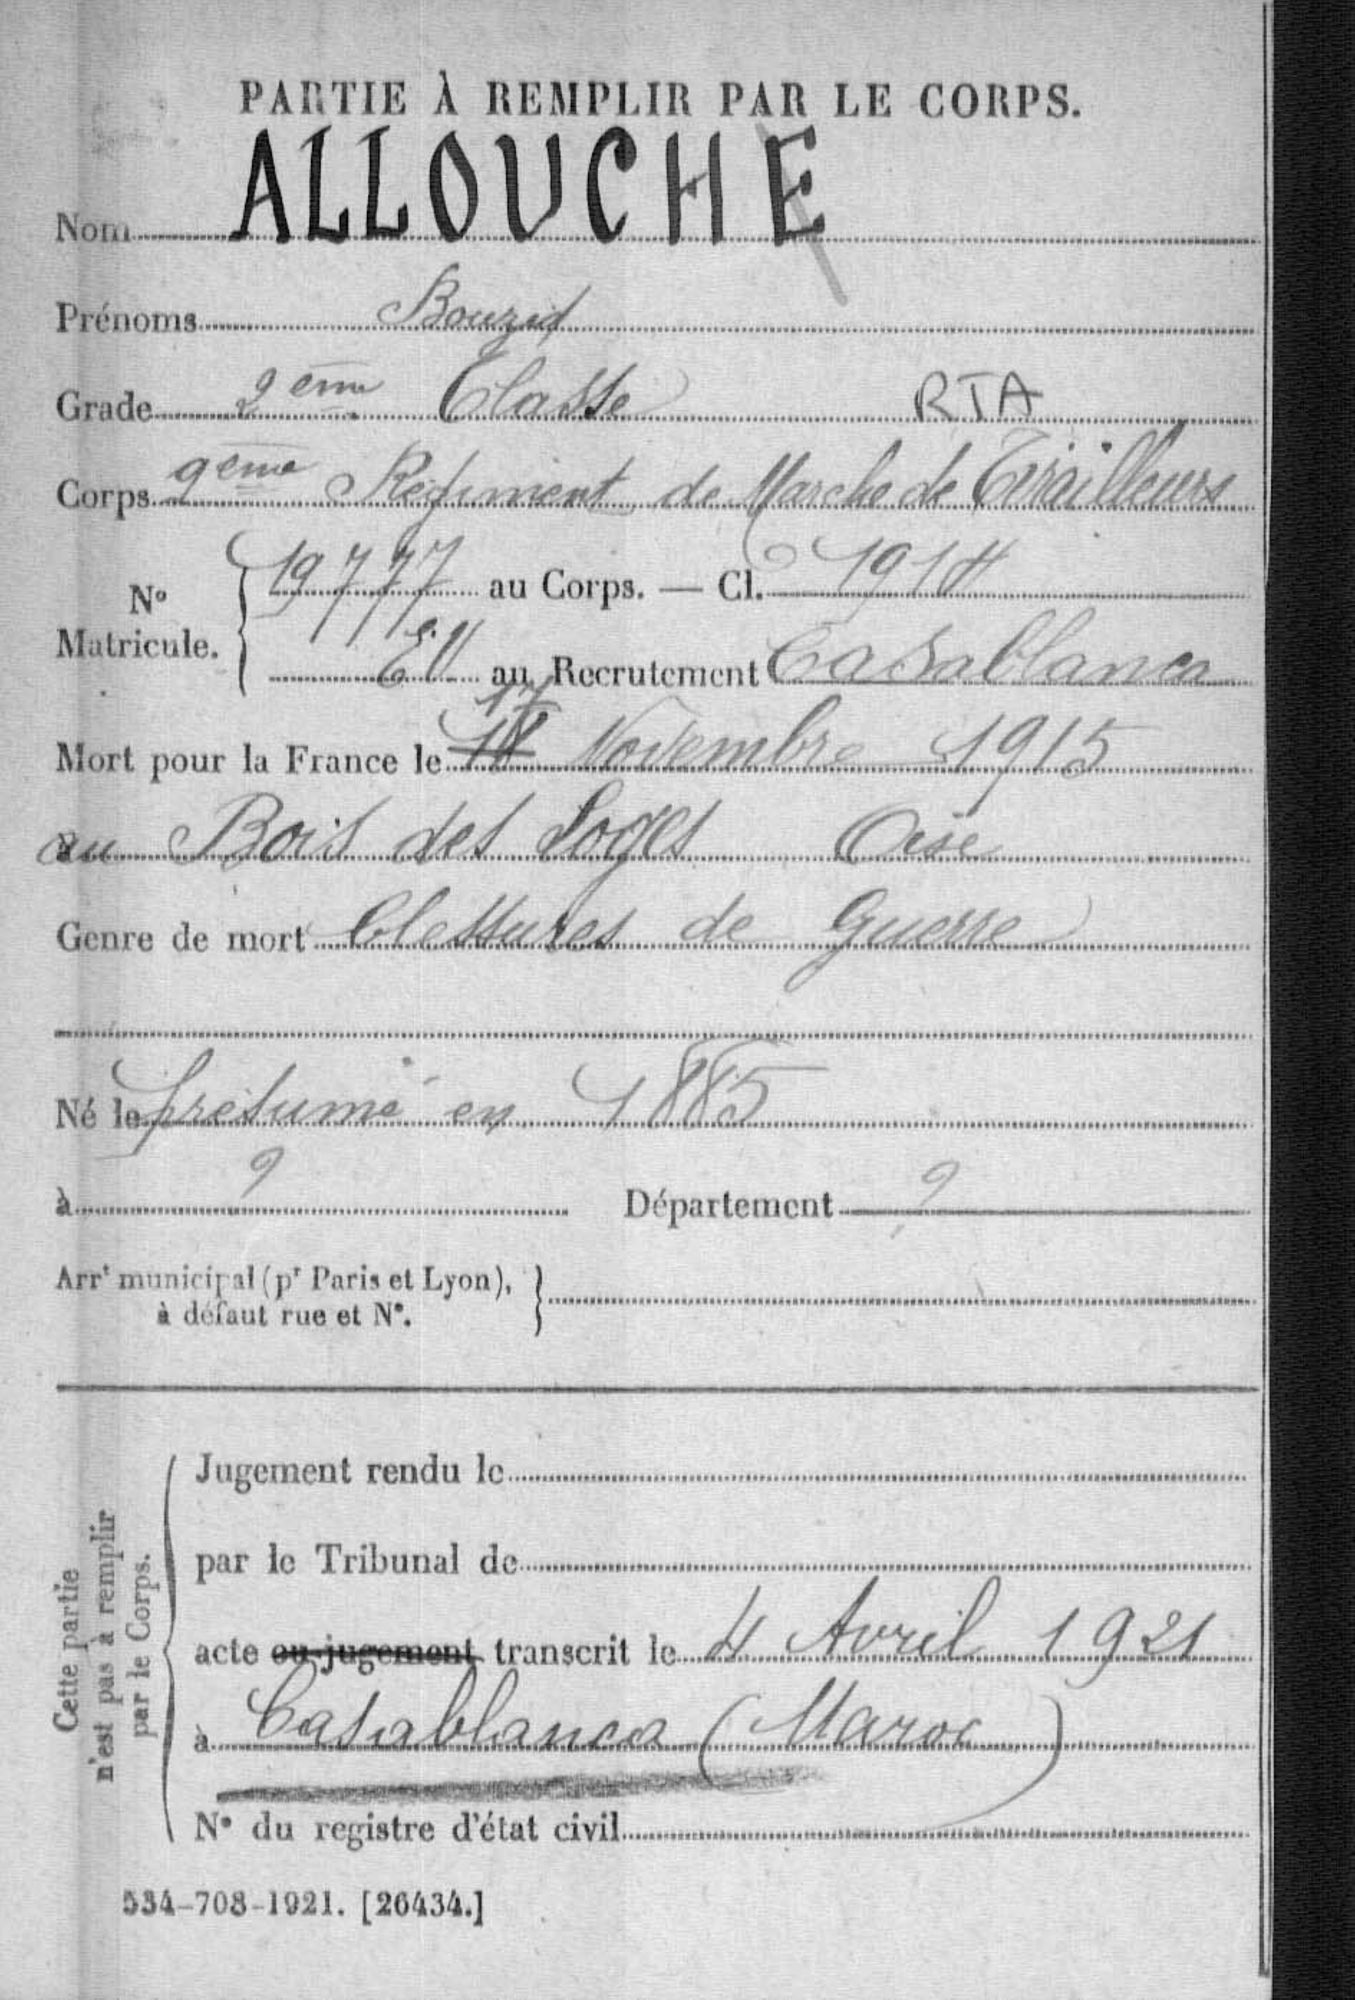 PARTIE À REMPLIR PAR LE CORPS.
Nom ALLOUCHE
Prénoms Bouzid
Grade 2ème Classe RTA
Corps 9ème Régiment de Marche de Tirailleurs
Nº Matricule. 19777 au Corps. — Cl. 1914
E.V. au Recrutement Casablanca
17
Mort pour la France le 18 Novembre 1915
au Bois des Loges Oise
Genre de mort blessures de Guerre
Né le présumé en 1885
à ? Département ?
Arrt municipal (pr Paris et Lyon),
à défaut rue et Nº.
Cette partie
n'est pas à remplir
par le Corps.
Jugement rendu le
par le Tribunal de
acte ou jugement transcrit le 4 Avril 1921
à Casablanca (Maroc)
Nº du registre d'état civil
534-708-1921. [26434.]